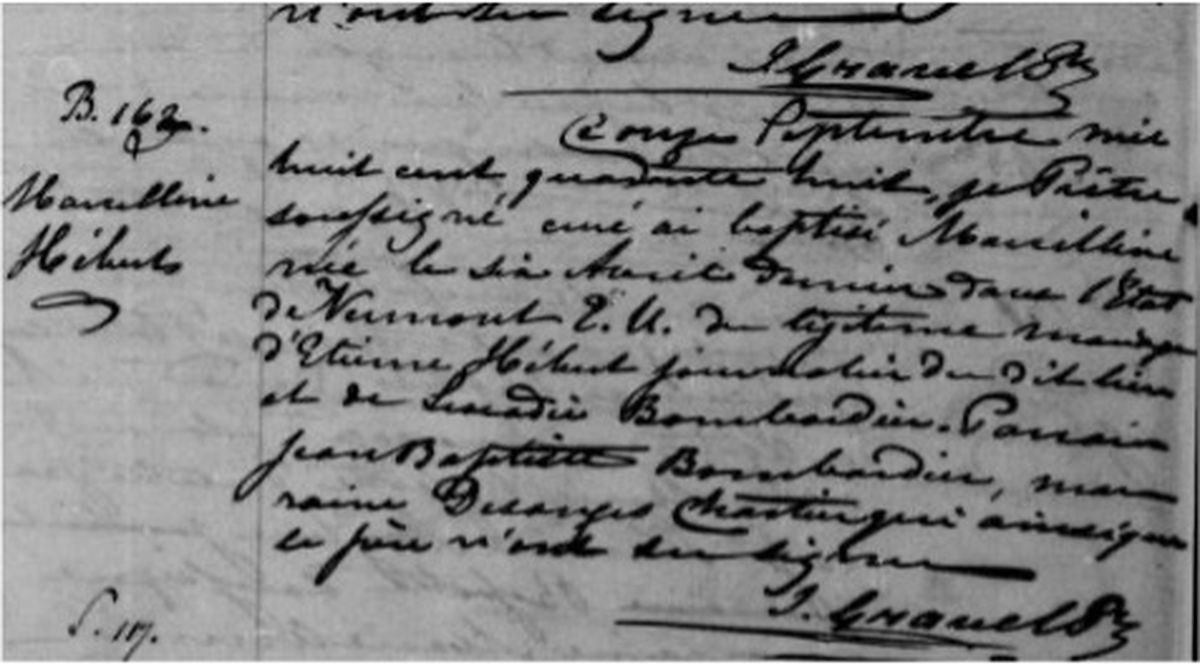 n'ont su signer
J. Gravel Ptre
B. 162.
Marcelline
Hébert
Le onze Septembre mil
huit cent quarante huit, je Prêtre
soussigné curé ai baptisé Marcelline
née le six Avril dernier dans l'Etat
de Vermont E. U. du légitime mariage
d'Etienne Hébert journalier du dit lieu
et de Leocadie Bombardier. Parrain
Jean Baptiste Bombardier, mar
raine Desanges Chartier qui ainsi que
le père n'ont su signer
J. Gravel Ptre
S. 117.